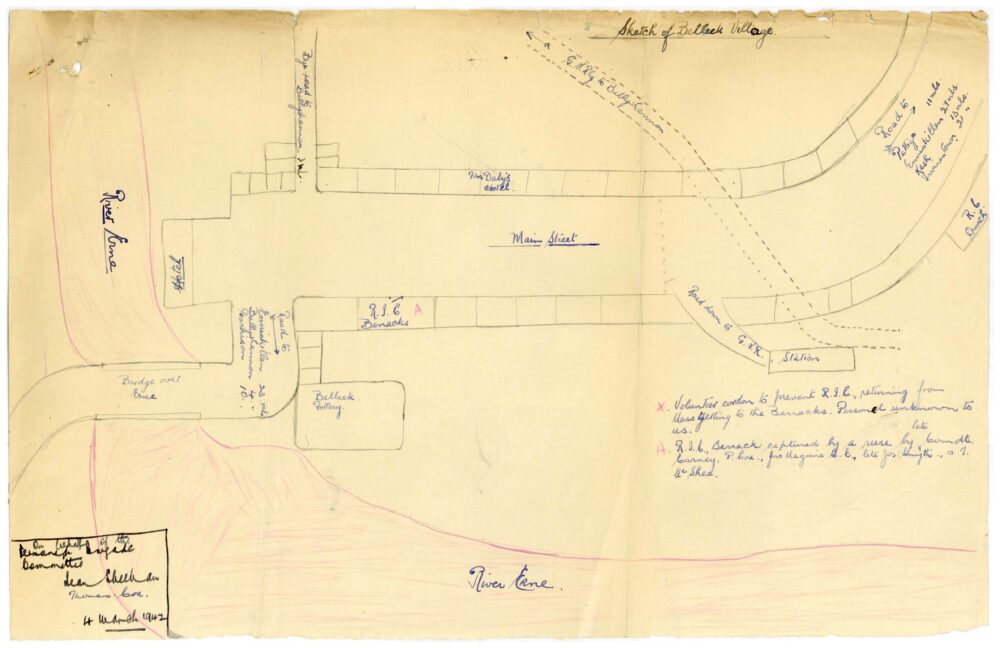 Sketch of Belleek Village
Bye road to
Ballyshannon 3 ml.
G. N. Rly to Ballyshannon
Road to
Pettigo 11 mls.
Enniskillen 27 mls.
Kesk 13 mls.
21 "
R. C
Church
River Erne
Mrs Daly's
Hotel.
Main Street
R. I. C
Barracks
A
Road to
Enniskillen 23 mls
Ballyshannon 4 -
Garrison 10.
Road down to G. N. R.
Station
Bridge over
Erne
Belleek
Pottery.
X. Volunteer cordon to prevent R. I. C., returning from
Mass getting to the Barracks. Personel unknown to
us.
late
A. R. I. C. Barrack captured by a ruse by Comdt.
Carney, P. Cox., Jno Maguire late Jos Smyth., & J.
Mc Shed.
River Erne.
On behalf of the
Fermanagh Brigade
Committee
Thomas Cox.
4 March 1942